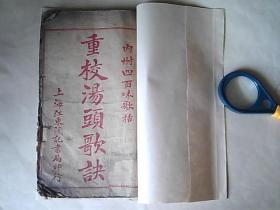 內附四百味歌括
重校湯頭歌訣
上海江東茂記書局印行